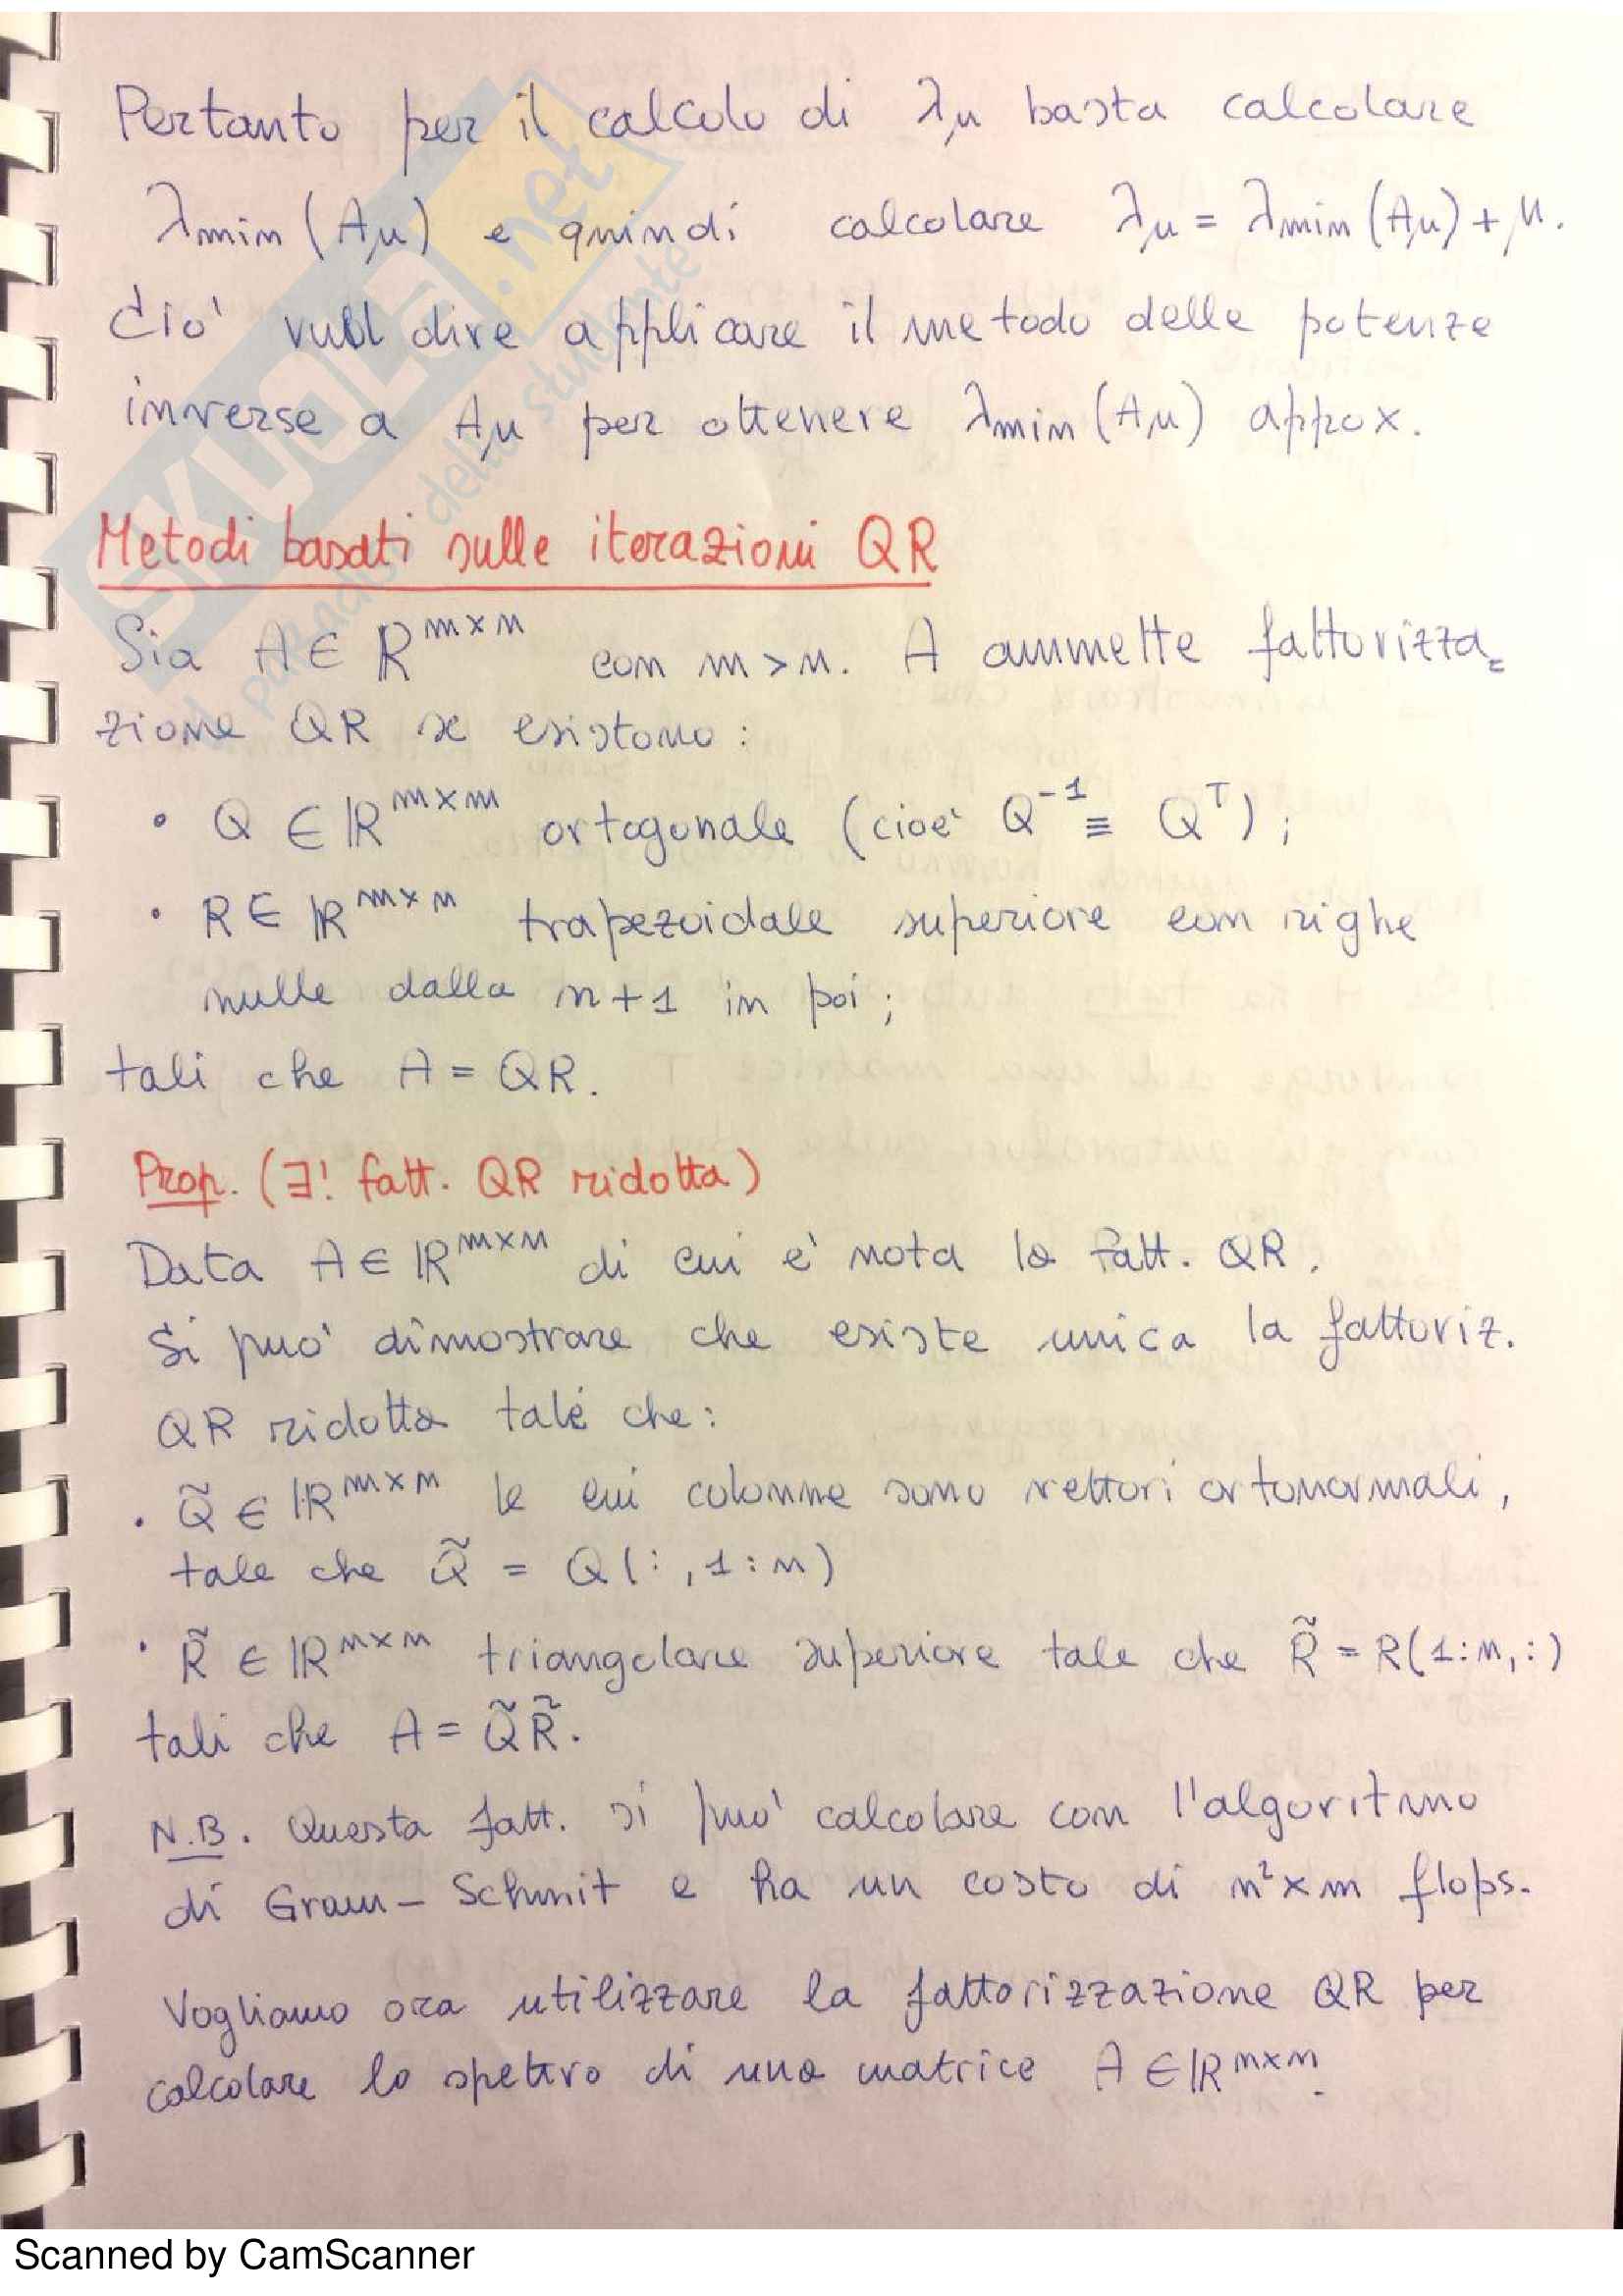 Pertanto per il calcolo di λμ basta calcolare
λmin (Aμ) e quindi calcolare λμ = λmin (Aμ) + μ.
Cio' vuol dire applicare il metodo delle potenze
inverse a Aμ per ottenere λmin (Aμ) appox.
Metodi basati sulle iterazioni QR
Sia A ∈ ℝ^m×n con m > n. A ammette fattorizza=
zione QR se esistono:
• Q ∈ ℝ^m×m ortogonale (cioe' Q^-1 ≡ Q^T);
• R ∈ ℝ^m×n trapezoidale superiore con righe
nulle dalla n+1 in poi;
tali che A = QR.
Prop. (∃! fatt. QR ridotta)
Data A ∈ ℝ^m×n di cui e' nota la fatt. QR.
Si puo' dimostrare che esiste unica la fattoriz.
QR ridotta tale che:
• Q̃ ∈ ℝ^m×n le cui colonne sono vettori ortonormali,
tale che Q̃ = Q(:,1:n)
• R̃ ∈ ℝ^n×n triangolare superiore tale che R̃ = R(1:n,:)
tali che A = Q̃R̃.
N.B. Questa fatt. si puo' calcolare con l'algoritmo
di Gram-Schmit e ha un costo di n²×m flops.
Vogliamo ora utilizzare la fattorizzazione QR per
calcolare lo spettro di una matrice A ∈ ℝ^n×n.
SKUOLA.net
il paradiso dello studente
Scanned by CamScanner